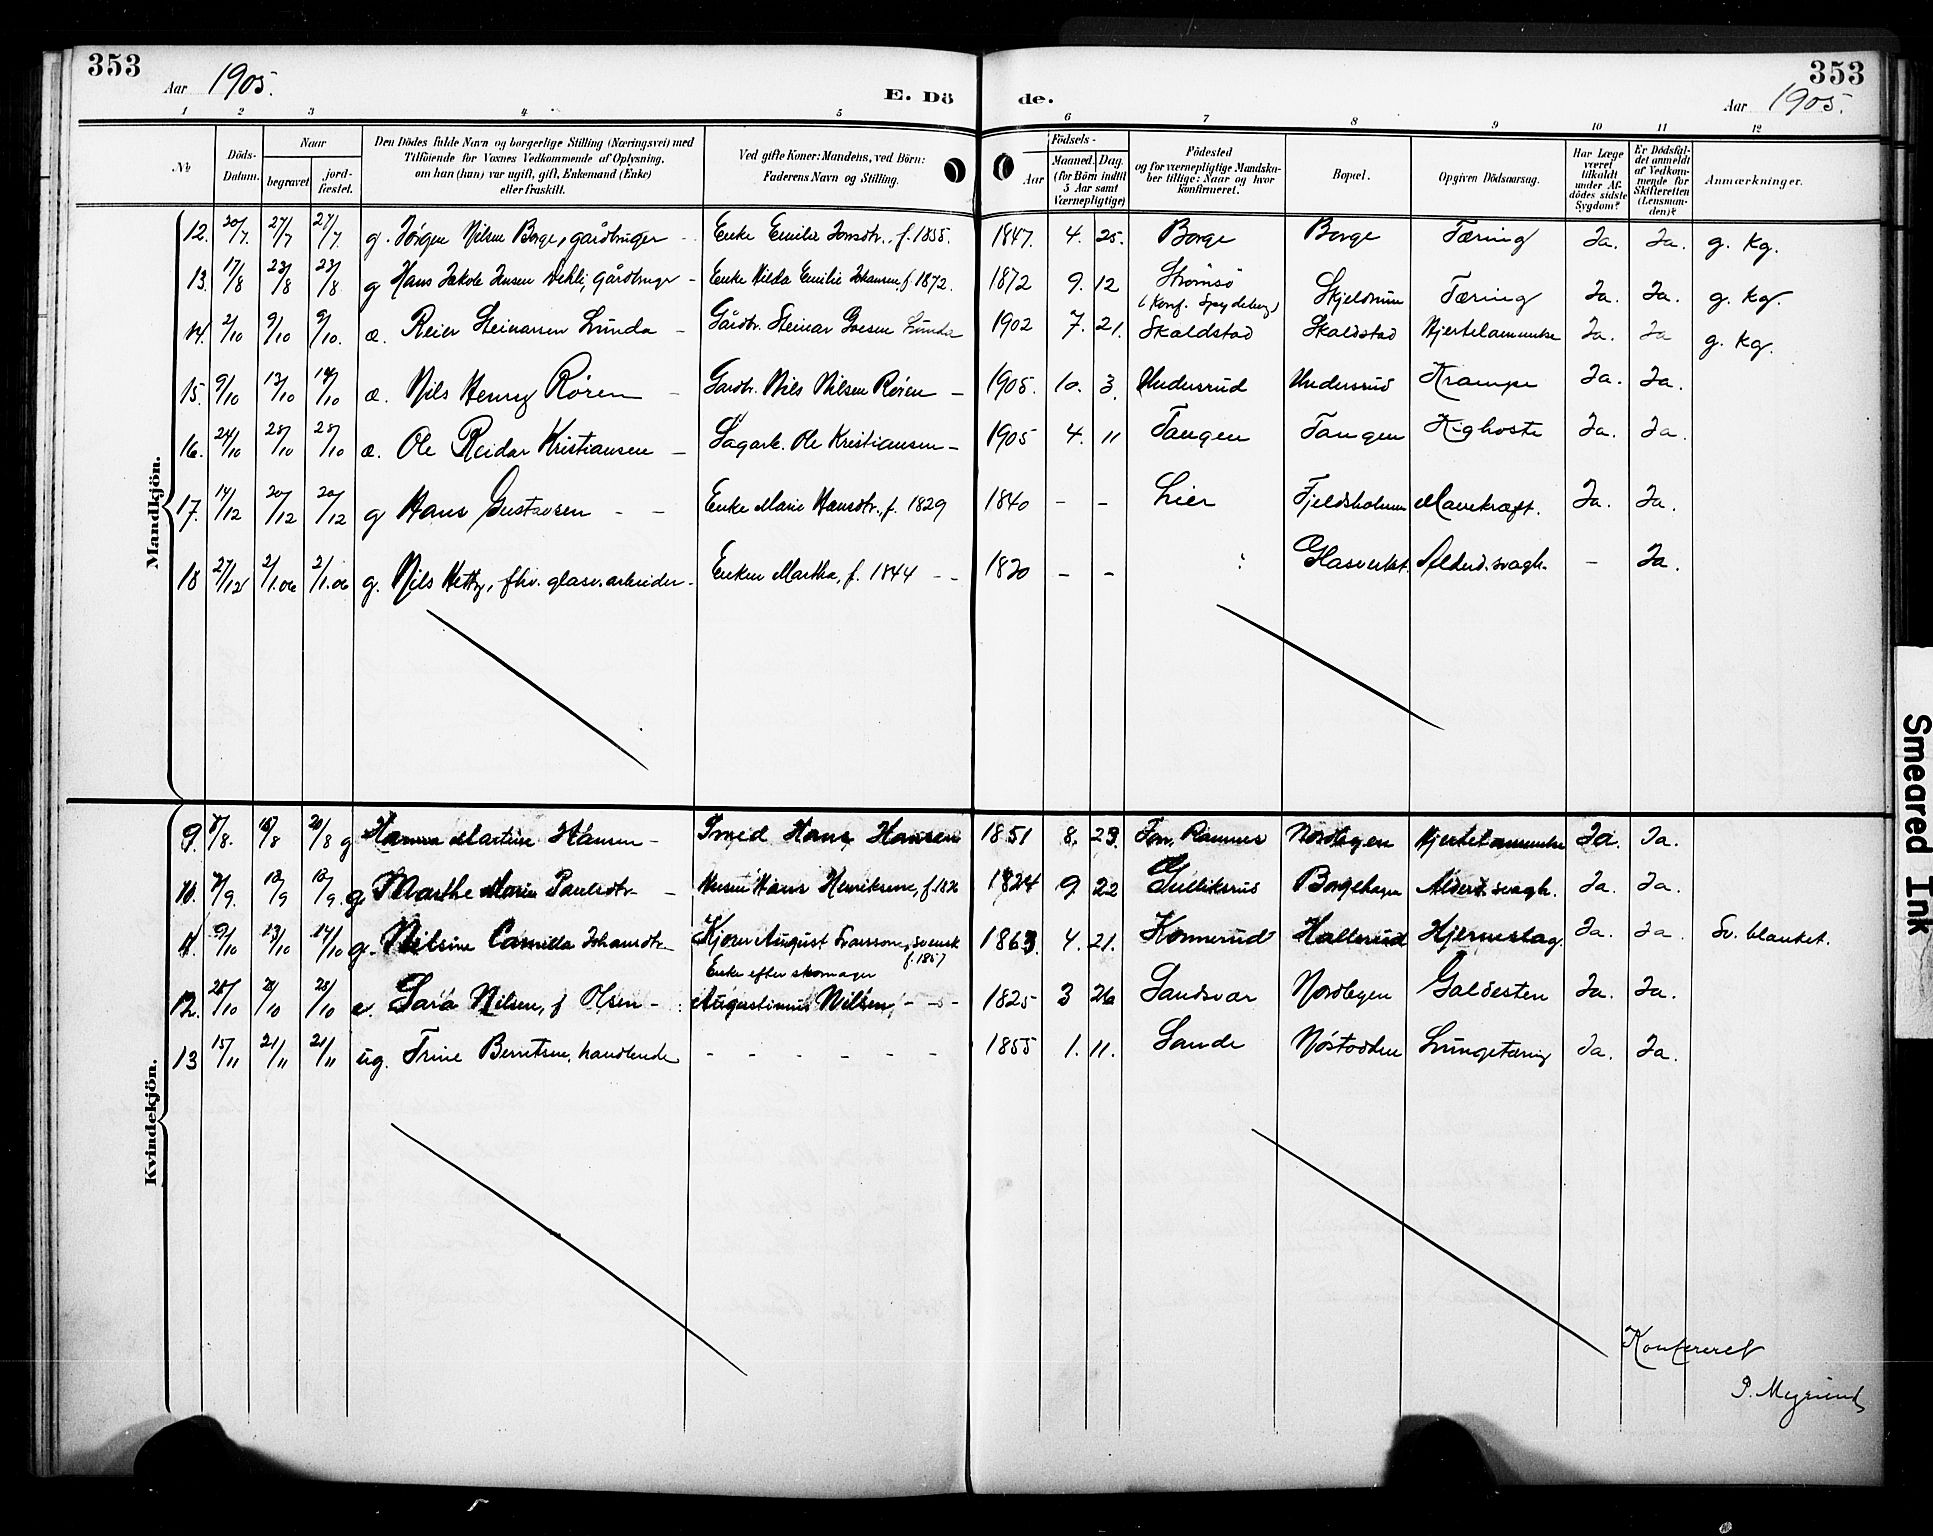 353
353
Aar 1905.
E. Dö de.
Aar 1905.
1 2 3 4 5 6 7 8 9 10 11 12
No
Döds-Datum.
Naar
begravet
jord-fæstet.
Den Dödes fulde Navn og borgerlige Stilling (Næringsvei) med
Tilföiende for Voxnes Vedkommende af Oplysning,
om han (hun) var ugift, gift, Enkemand (Enke)
eller fraskilt.
Ved gifte Koner: Mandens, ved Börn:
Faderens Navn og Stilling.
Födsels-
Aar
Maaned. Dag.
(for Börn indtil
5 Aar samt
Værnepligtige)
Födested
og for værnepligtige Mandska-
ber tillige: Naar og hvor
konfirmeret.
Bopæl.
Opgiven Dödsaarsag.
Har Læge
været
tilkaldt
under Af-
dödes sidste
Sygdom?
Er Dödsfal-
det anmeldt
af Vedkom-
mende for
Skifteretten
(Lensman-
den)?
Anmærkninger.
Mandkjön.
12. 20/7 27/7 27/7. g. Jörgen Nilsen Borge, gårdbruger - Enke Emilie f. 1855. 1847. 4. 25. Borge Borge Tæring Ja. Ja. g. kg.
13. 17/8 23/8 23/8. g Hans Jakob Jensen Vekli, gårdbruger - Enke Hilda Emilie Johansen f. 1872. 1872 9. 12 Strömsö (Konf. Spydeberg) Skjeldrum Tæring Ja. Ja. g. kg.
14. 2/10 9/10 9/10. æ. Reier Steinarsen Lunda - Gårdbr. Steinar Lunda 1902 7. 21. Skaldstad Skaldstad Hjertelammelse Ja. Ja g. kg.
15. 9/10 13/10 14/10 æ. Nils Henry Rören - Gårdbr. Nils Nilsen Rören - 1905. 10. 3. Undersrud Undersrud Krampe Ja. Ja.
16. 24/10 28/10 28/10 æ. Ole Reidar Kristiansen - Sagarb. Ole Kristiansen - 1905 4. 11 Tangen Tangen Kighoste Ja. Ja.
17. 14/12 20/12 20/12 g Hans Gustavsen - - Enke Marie Hansdtr., f. 1829 1840 - - Lier Fjeldsholmen Mavekræft. Ja. Ja.
18 27/12 2/1.06 2/1.06 g. Nils Hetty, fhv. glasv.arbeider - Enken Martha, f. 1844 - - 1820 - - Glasverket. Alderd.svagh. - Ja.
Kvindekjön.
9. /8. /8 20/8 g Hanna Martine Hansen - Smed Hans Hansen 1851 8. 23. Ramnes Nordbyen Hjertelammelse Ja. Ja.
10. /9. 12/9 12/9. g. Marthe Marie Paulsdtr - Hans Henriksen, f. 1824 9 22 Gulliksrud Borgehagen Alderd.svagh. Ja. Ja.
11. 9/10 13/10 14/10 g. Nilsine Camilla Johansdtr - August Svensson, svensk f. 1857 1863. 4. 21. Konnerud Hallerud Hjerneslag. Ja. Ja. Sv. blanket.
12. /10 /10 /10 e. Sara Nilsen, f Olsen - Enke efter skomager Augustinus Nilsen, - - 1825 3 26 Sandsvær Nordbyen Galdesten Ja. Ja.
13 15/11 21/11 21/11 ug. Trine Berntsen, handlende - - - - - - 1855 1. 11. Sande Nöstodden Lungetæring Ja. Ja.
Konfereret
Smeared Ink